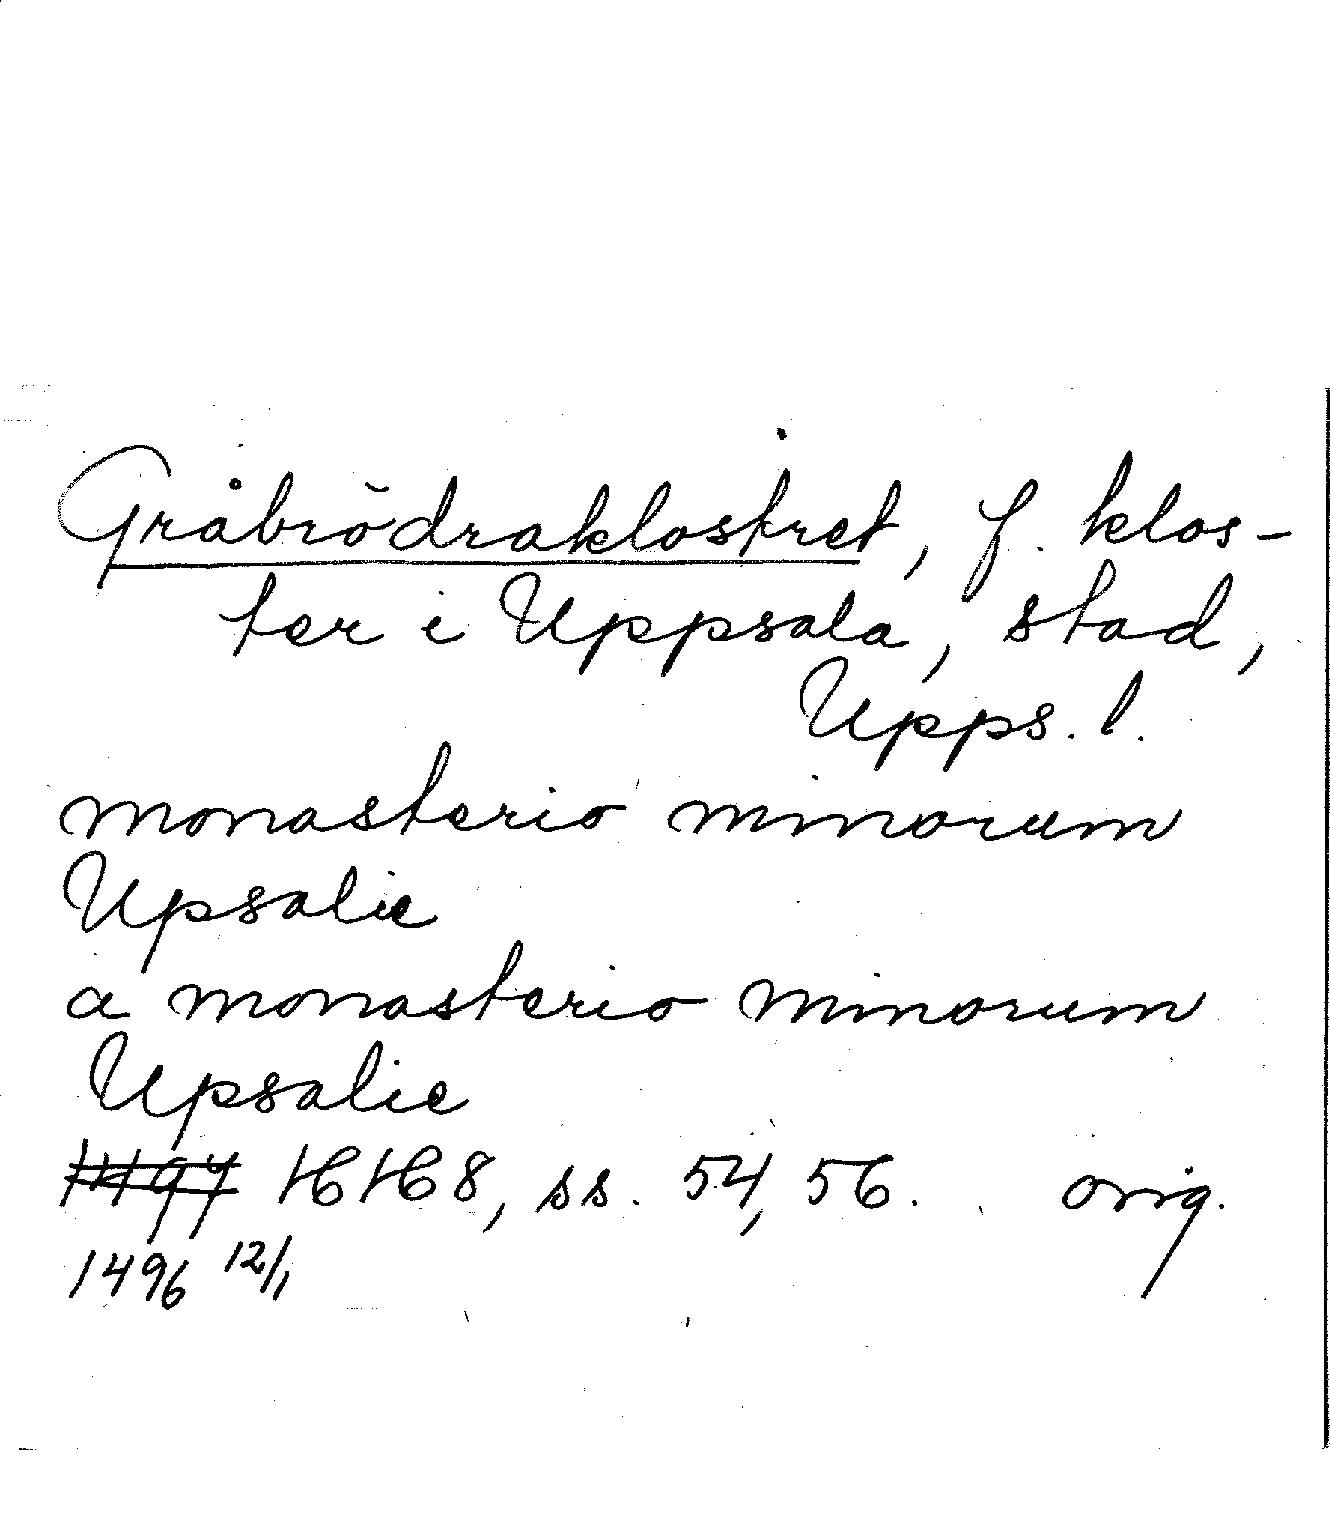 Gråbrödraklostret, f. klos-
ter i Uppsala, stad,
Upps. l.
monasterio minorum
Upsalie
a monasterio minorum
Upsalie
HH 8, ss. 54, 56. orig.
1496 12/1